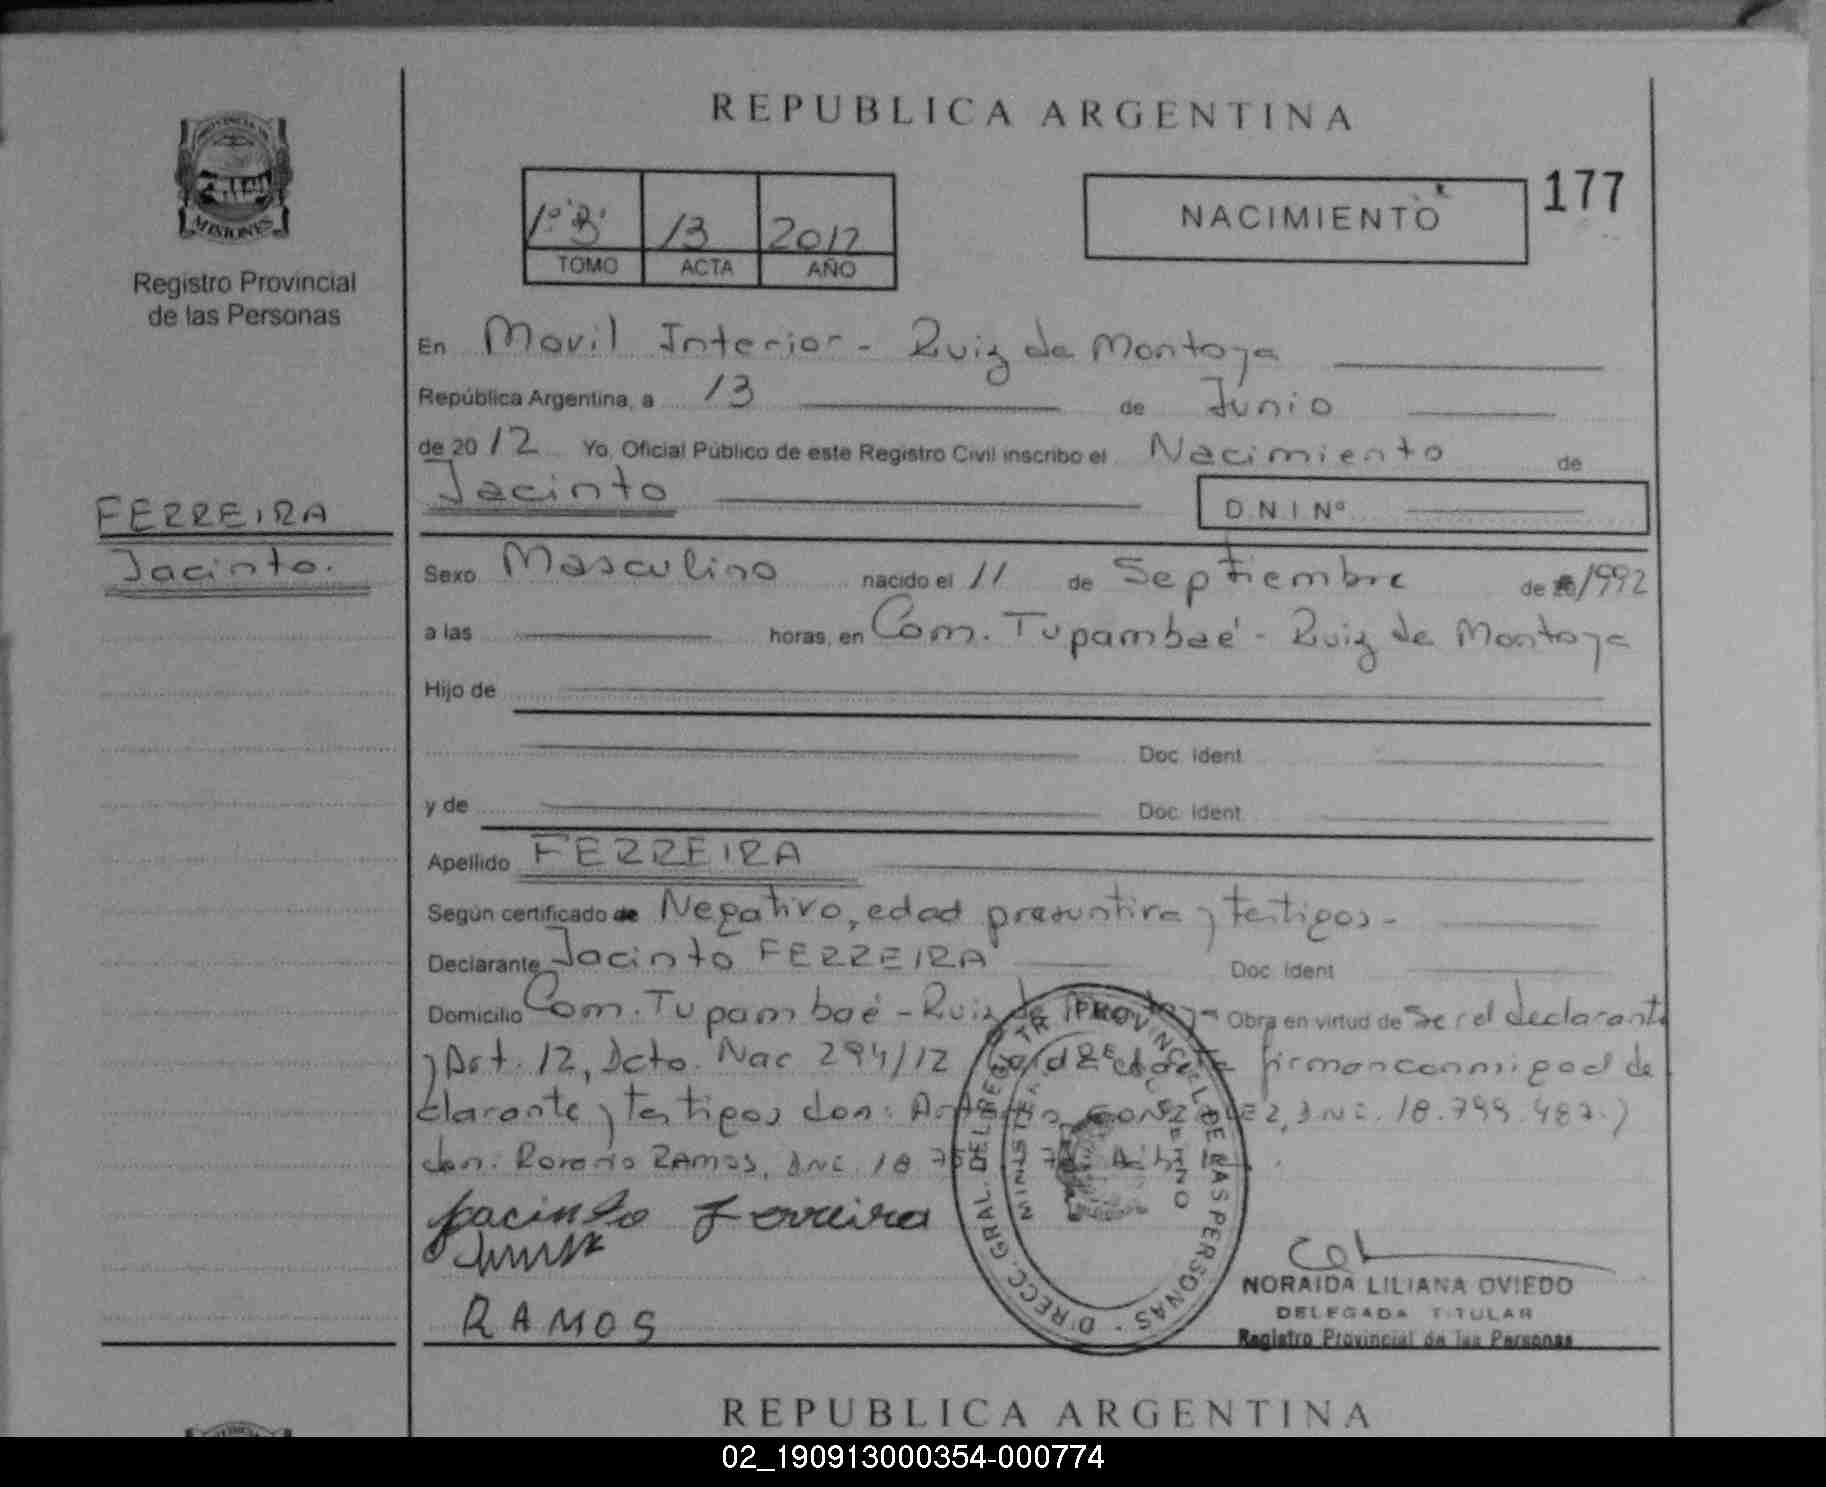 REPUBLICA ARGENTINA
PROVINCIA DE
MISIONES
Registro Provincial
de las Personas
1º "B" 13 2012
TOMO ACTA AÑO
NACIMIENTO
177
En Movil Interior - Ruiz de Montoya
República Argentina, a 13 de Junio
de 2012 Yo, Oficial Público de este Registro Civil inscribo el Nacimiento de
Jacinto D.N.I Nº
FERREIRA
Jacinto.
Sexo Masculino nacido el 11 de Septiembre de 1992
a las horas, en Com. Tupambaé - Ruiz de Montoya
Hijo de
Doc. Ident.
y de Doc. Ident.
Apellido FERREIRA
Según certificado de Negativo, edad presuntiva y testigos -
Declarante Jacinto FERREIRA Doc. Ident.
Domicilio Com. Tupambaé - Ruiz de Montoya Obra en virtud de Ser el declarante
y Art. 12, Dcto. Nac 294/12 firman conmigo el de
clarante y testigos don: DNI. 18.799.487 y
don: Rosario RAMOS, DNI. 18
Jacinto Ferreira
RAMOS
DIRECC. GRAL. DEL REGISTRO PROVINCIAL DE LAS PERSONAS
MINISTERIO DE GOBIERNO
NORAIDA LILIANA OVIEDO
DELEGADA TITULAR
Registro Provincial de las Personas
REPUBLICA ARGENTINA
02_190913000354-000774